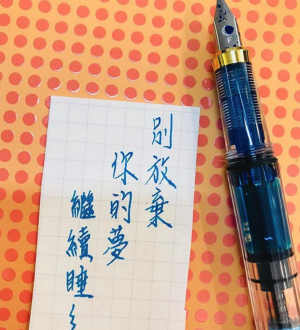 別放棄
你的夢
繼續睡